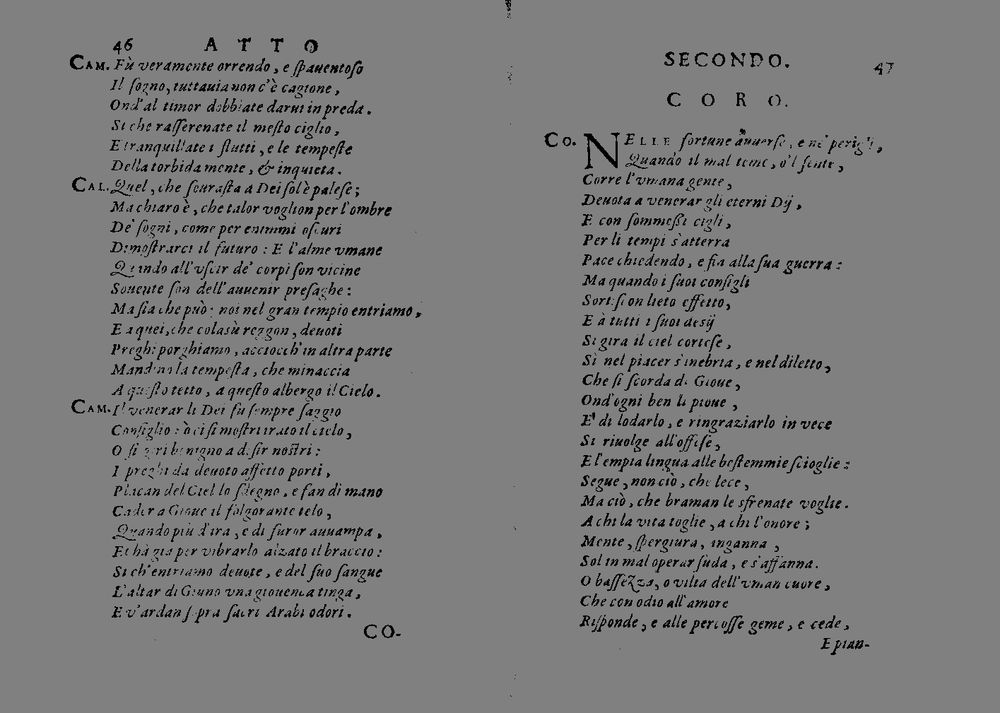 46 ATTO
CAM. Fù veramente orrendo, e ſpauentoſo
Il ſogno, tuttauia non c'è cagione,
Ond'al timor dobbiate darui in preda.
Si che raſſerenate il meſto ciglio,
E tranquillate i flutti, e le tempeſte
Della torbida mente, & inquieta.
CAL. Quel, che ſouraſta a Dei ſol è paleſe;
Ma chiaro è, che talor voglion per l'ombre
De' ſogni, come per enimmi oſcuri
Dimoſtrarci il futuro: E l'alme vmane
Quando all'vſcir de' corpi ſon vicine
Souente ſon dell'auuenir preſaghe:
Ma ſia che può: noi nel gran tempio entriamo,
E a quei, che colasù reggon, deuoti
Preghi porghiamo, acciocch'in altra parte
Mandin la tempeſta, che minaccia
A queſto tetto, a queſto albergo il Cielo.
CAM. Il venerar li Dei fu ſempre ſaggio
Conſiglio: ò ci ſi moſtri irato il cielo,
O ſi giri benigno a deſir noſtri:
I preghi da deuoto affetto porti,
Placan del Ciel lo ſdegno, e fan di mano
Cader a Gioue il folgorante telo,
Quando più d'ira, e di furor auuampa,
Et hà già per vibrarlo alzato il braccio:
Si ch'entriamo deuote, e del ſuo ſangue
L'altar di Giuno vna giouenca tinga,
E v'ardan ſopra ſacri Arabi odori.
CO-
SECONDO. 47
CORO.
CO. NELLE fortune auuerſe, e ne' perigli,
Quando il mal teme, o'l ſente,
Corre l'vmana gente,
Deuota a venerar gli eterni Dij,
E con ſommeſſi cigli,
Per li tempi s'atterra
Pace chiedendo, e fia alla ſua guerra:
Ma quando i ſuoi conſigli
Sortiſcon lieto effetto,
E à tutti i ſuoi desij
Si gira il ciel corteſe,
Si nel piacer s'inebria, e nel diletto,
Che ſi ſcorda di Gioue,
Ond'ogni ben li pioue,
E' di lodarlo, e ringraziarlo in vece
Si riuolge all'offeſe,
E l'empia lingua alle beſtemmie ſcioglie:
Segue, non ciò, che lece,
Ma ciò, che braman le sfrenate voglie.
A chi la vita toglie, a chi l'onore;
Mente, ſpergiura, inganna,
Sol in mal operar ſuda, e s'affanna.
O baſſezza, o viltà dell'vman cuore,
Che con odio all'amore
Riſponde, e alle percoſſe geme, e cede,
E pian-